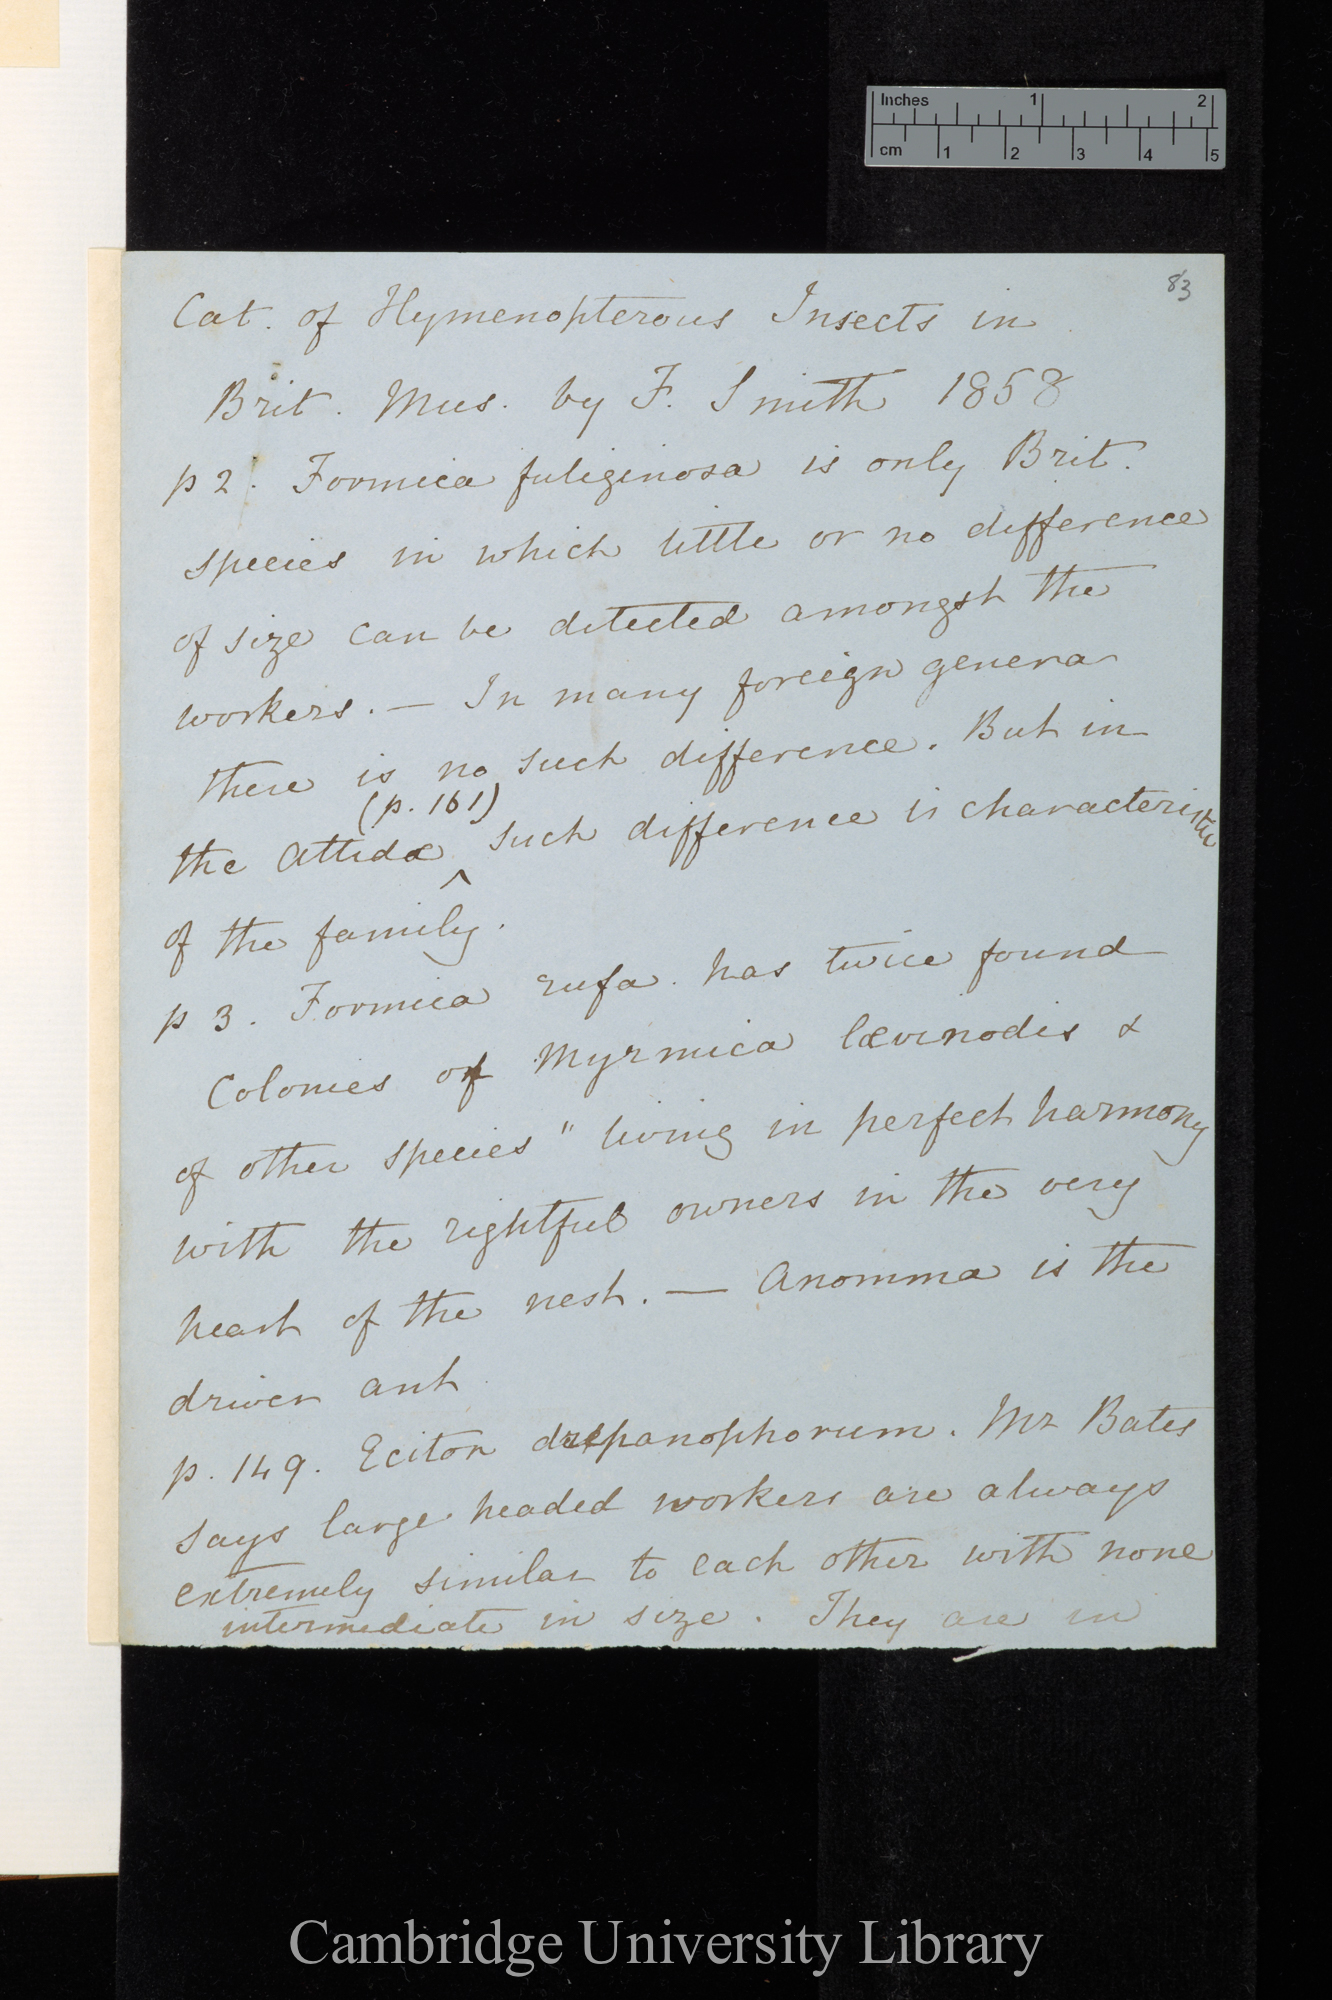 Inches 1 2
cm 1 2 3 4 5
83
Cat. of Hymenopterous Insects in
Brit. Mus. by F. Smith 1858
p 2. Formica fuliginosa is only Brit.
species in which little or no difference
of size can be detected amongst the
workers. — In many foreign genera
there is no such difference. But in
(p. 161)
the Attidæ ^ such difference is characteristic
of the family.
p 3. Formica rufa. has twice found
Colonies of Myrmica lævinodis &
of other species " living in perfect harmony
with the rightful owners in the very
heart of the nest. — Anomma is the
driver ant
p. 149. Eciton drepanophorum. Mr Bates
says large headed workers are always
extremely similar to each other with none
intermediate in size. They are in
Cambridge University Library